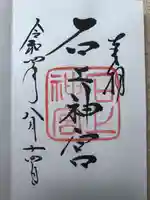 奉拝
石上神宮
令和四年八月十四日